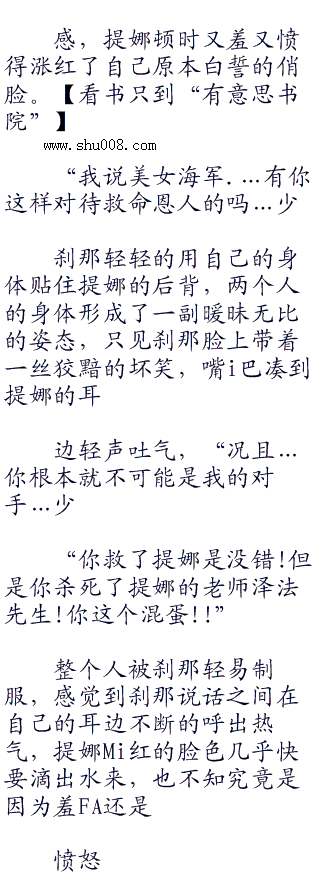 感，提娜顿时又羞又愤
得涨红了自己原本白誓的俏
脸。【看书只到“有意思书
院”】
www.shu008.com
“我说美女海军.…有你
这样对待救命恩人的吗…少
刹那轻轻的用自己的身
体贴住提娜的后背，两个人
的身体形成了一副暖昧无比
的姿态，只见刹那脸上带着
一丝狡黯的坏笑，嘴i巴凑到
提娜的耳
边轻声吐气，“况且…
你根本就不可能是我的对
手…少
“你救了提娜是没错!但
是你杀死了提娜的老师泽法
先生!你这个混蛋!!”
整个人被刹那轻易制
服，感觉到刹那说话之间在
自己的耳边不断的呼出热
气，提娜Mi红的脸色几乎快
要滴出水来，也不知究竟是
因为羞FA还是
愤怒